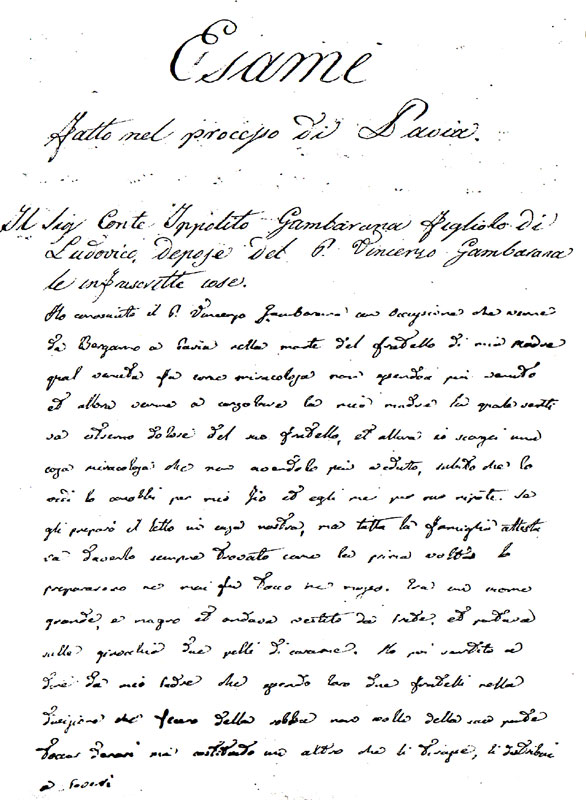 Esame
fatto nel processo di Pavia.
Il Sig Conte Ippolito Gambarana figliolo di
Ludovico, depose del P. Vincenzo Gambarana
le infrascritte cose.
Ho conosciuto il P. Vincenzo Gambarana con occasione che venne
da Bergamo a Pavia nella morte del fratello di mia Madre
qual venuta fu cosa miracolosa non essendo più venuto
et allora venne a consolare la mia madre la quale senti
va estremo dolore del suo fratello, et allora io scorsi una
cosa miracolosa che non avendolo più veduto, subito che lo
vidi lo conobbi per mio Zio et egli me per suo nipote. Se
gli preparò il letto in casa nostra, ma tutta la famiglia attesta
va d'averlo sempre trovato come la prima volta lo
prepararono ne mai fu tocco ne mosso. Era un uomo
grande, e magro et andava vestito da Prete, et portava
sulle ginocchia due pelli di corame. Ho poi sentito a
dire da mio Padre che essendo loro due fratelli nella
divisione che fecero della robba non volle della sua parte
toccar denari mà costituendo un altro che li tirasse, li distribuì
a Poveri